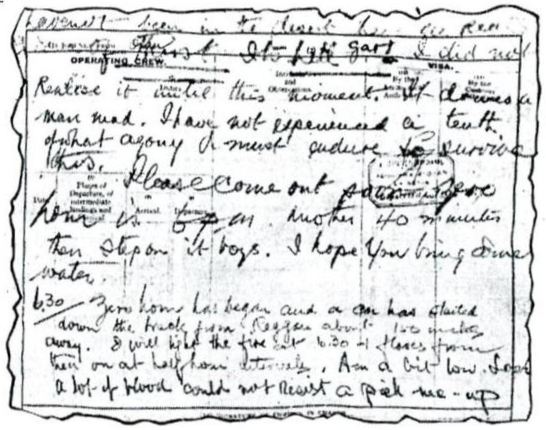 haven't been in the desert
of thirst I did not
OPERATING CREW. VISA.
Realise it until this moment. It drives a
man mad. I have not experienced a tenth
of what agony I must endure to survive
this.
Please come out soon. Zero
hour is 6 pm. Another 40 minutes
then step on it boys. I hope you bring some
water.
6.30 Zero hour has began and a car has started
down the track from Reggan about 100 miles
away. I will light the fire at 6.30 & flares from
then on at half hour intervals. Am a bit low. Lost
a lot of blood could not resist a pick-me-up